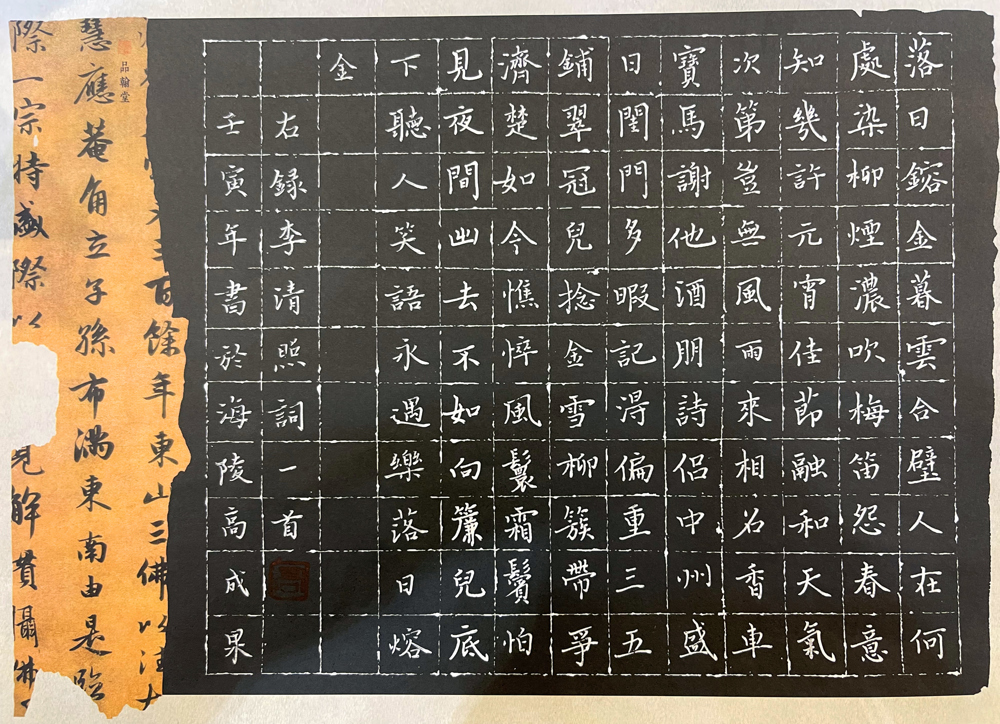 落日鎔金暮雲合璧人在何
處染柳煙濃吹梅笛怨春意
知幾許元宵佳節融和天氣
次第豈無風雨來相召香車
寶馬謝他酒朋詩侶中州盛
日閨門多暇記得偏重三五
鋪翠冠兒捻金雪柳簇帶爭
濟楚如今憔悴風鬟霜鬢怕
見夜間出去不如向簾兒底
下聽人笑語永遇樂落日熔
金
右錄李清照詞一首
壬寅年書於海陵高成果
百餘年東山三佛以法
品翰堂
慧應菴角立子孫布滿東南由是臨
際一宗特盛際以見解貫攝